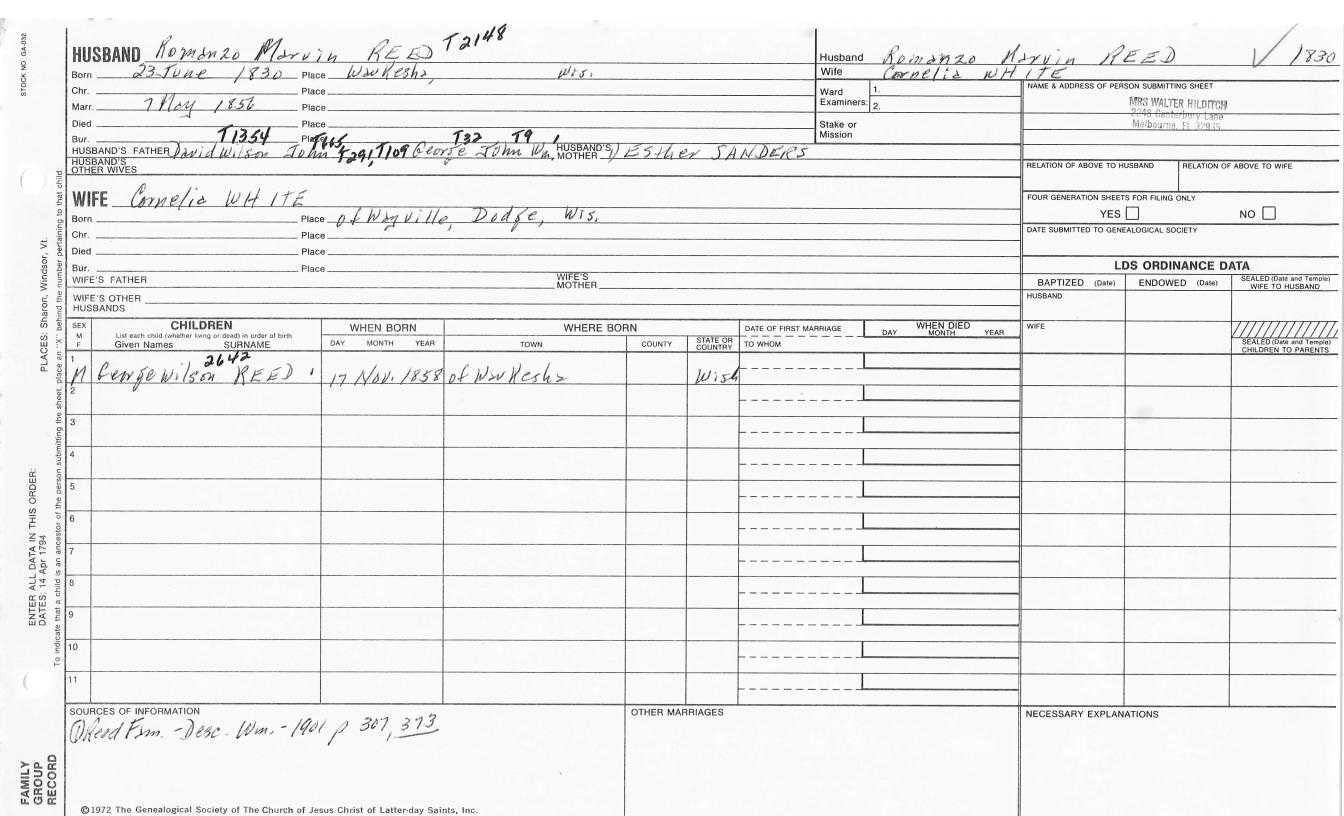 STOCK NO. GA-032
PLACES: Sharon, Windsor, Vt.
ENTER ALL DATA IN THIS ORDER:
DATES: 14 Apr 1794
To indicate that a child is an ancestor of the person submitting the sheet, place an "X" behind the number pertaining to that child.
FAMILY GROUP RECORD
HUSBAND Romanzo Marvin REED T2148
Born 23 June 1830 Place Waukesha, Wis.
Chr. Place
Marr. 7 May 1856 Place
Died Place
Bur. Place
T1354 T665 T32 T9
HUSBAND'S FATHER David Wilson John T291, T109 George John Wm. HUSBAND'S MOTHER 1) Esther SANDERS
HUSBAND'S OTHER WIVES
WIFE Cornelia WHITE
Born Place of Wayville, Dodge, Wis.
Chr. Place
Died Place
Bur. Place
WIFE'S FATHER WIFE'S MOTHER
WIFE'S OTHER HUSBANDS
Husband Romanzo Marvin REED 1830
Wife Cornelia WHITE
Ward Examiners: 1. 2.
Stake or Mission
NAME & ADDRESS OF PERSON SUBMITTING SHEET
MRS WALTER HILDITCH
2248 Canterbury Lane
Melbourne, FL 32935
RELATION OF ABOVE TO HUSBAND RELATION OF ABOVE TO WIFE
FOUR GENERATION SHEETS FOR FILING ONLY
YES NO
DATE SUBMITTED TO GENEALOGICAL SOCIETY
LDS ORDINANCE DATA
BAPTIZED (Date) ENDOWED (Date) SEALED (Date and Temple) WIFE TO HUSBAND
HUSBAND
WIFE
SEALED (Date and Temple) CHILDREN TO PARENTS
SEX M F CHILDREN WHEN BORN WHERE BORN DATE OF FIRST MARRIAGE WHEN DIED
List each child (whether living or dead) in order of birth
Given Names SURNAME DAY MONTH YEAR TOWN COUNTY STATE OR COUNTRY TO WHOM DAY MONTH YEAR
2642
1 M George Wilson REED 17 Nov. 1858 of Waukesha Wis
2
3
4
5
6
7
8
9
10
11
SOURCES OF INFORMATION OTHER MARRIAGES NECESSARY EXPLANATIONS
① Reed Fam. - Desc. Wm. - 1901 p 307, 373
©1972 The Genealogical Society of The Church of Jesus Christ of Latter-day Saints, Inc.